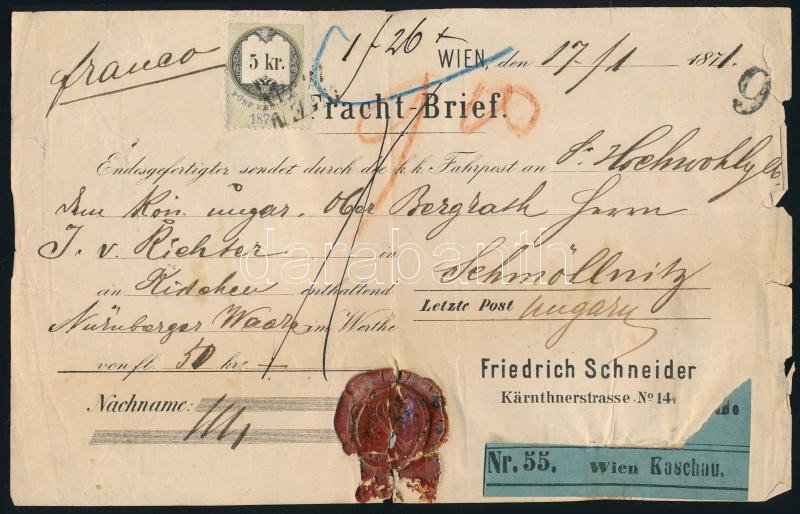 franco
5 kr.
FÜNF KR
187
1/26
WIEN, den 17/1 1871.
9
Fracht-Brief.
Endesgefertigter sendet durch die k. k. Fahrpost an Sr Hochwohlg
dem Kön. ungar. Ober Bergrath Herrn
J. v. Richter in Schmöllnitz
ein Kistchen enthaltend
Letzte Post Ungarn
Nürnberger Waare im Werthe
von fl. 50 kr.
Friedrich Schneider
Kärnthnerstrasse No 14.
Nachname:
Nr. 55. Wien Kaschau.
darabanth